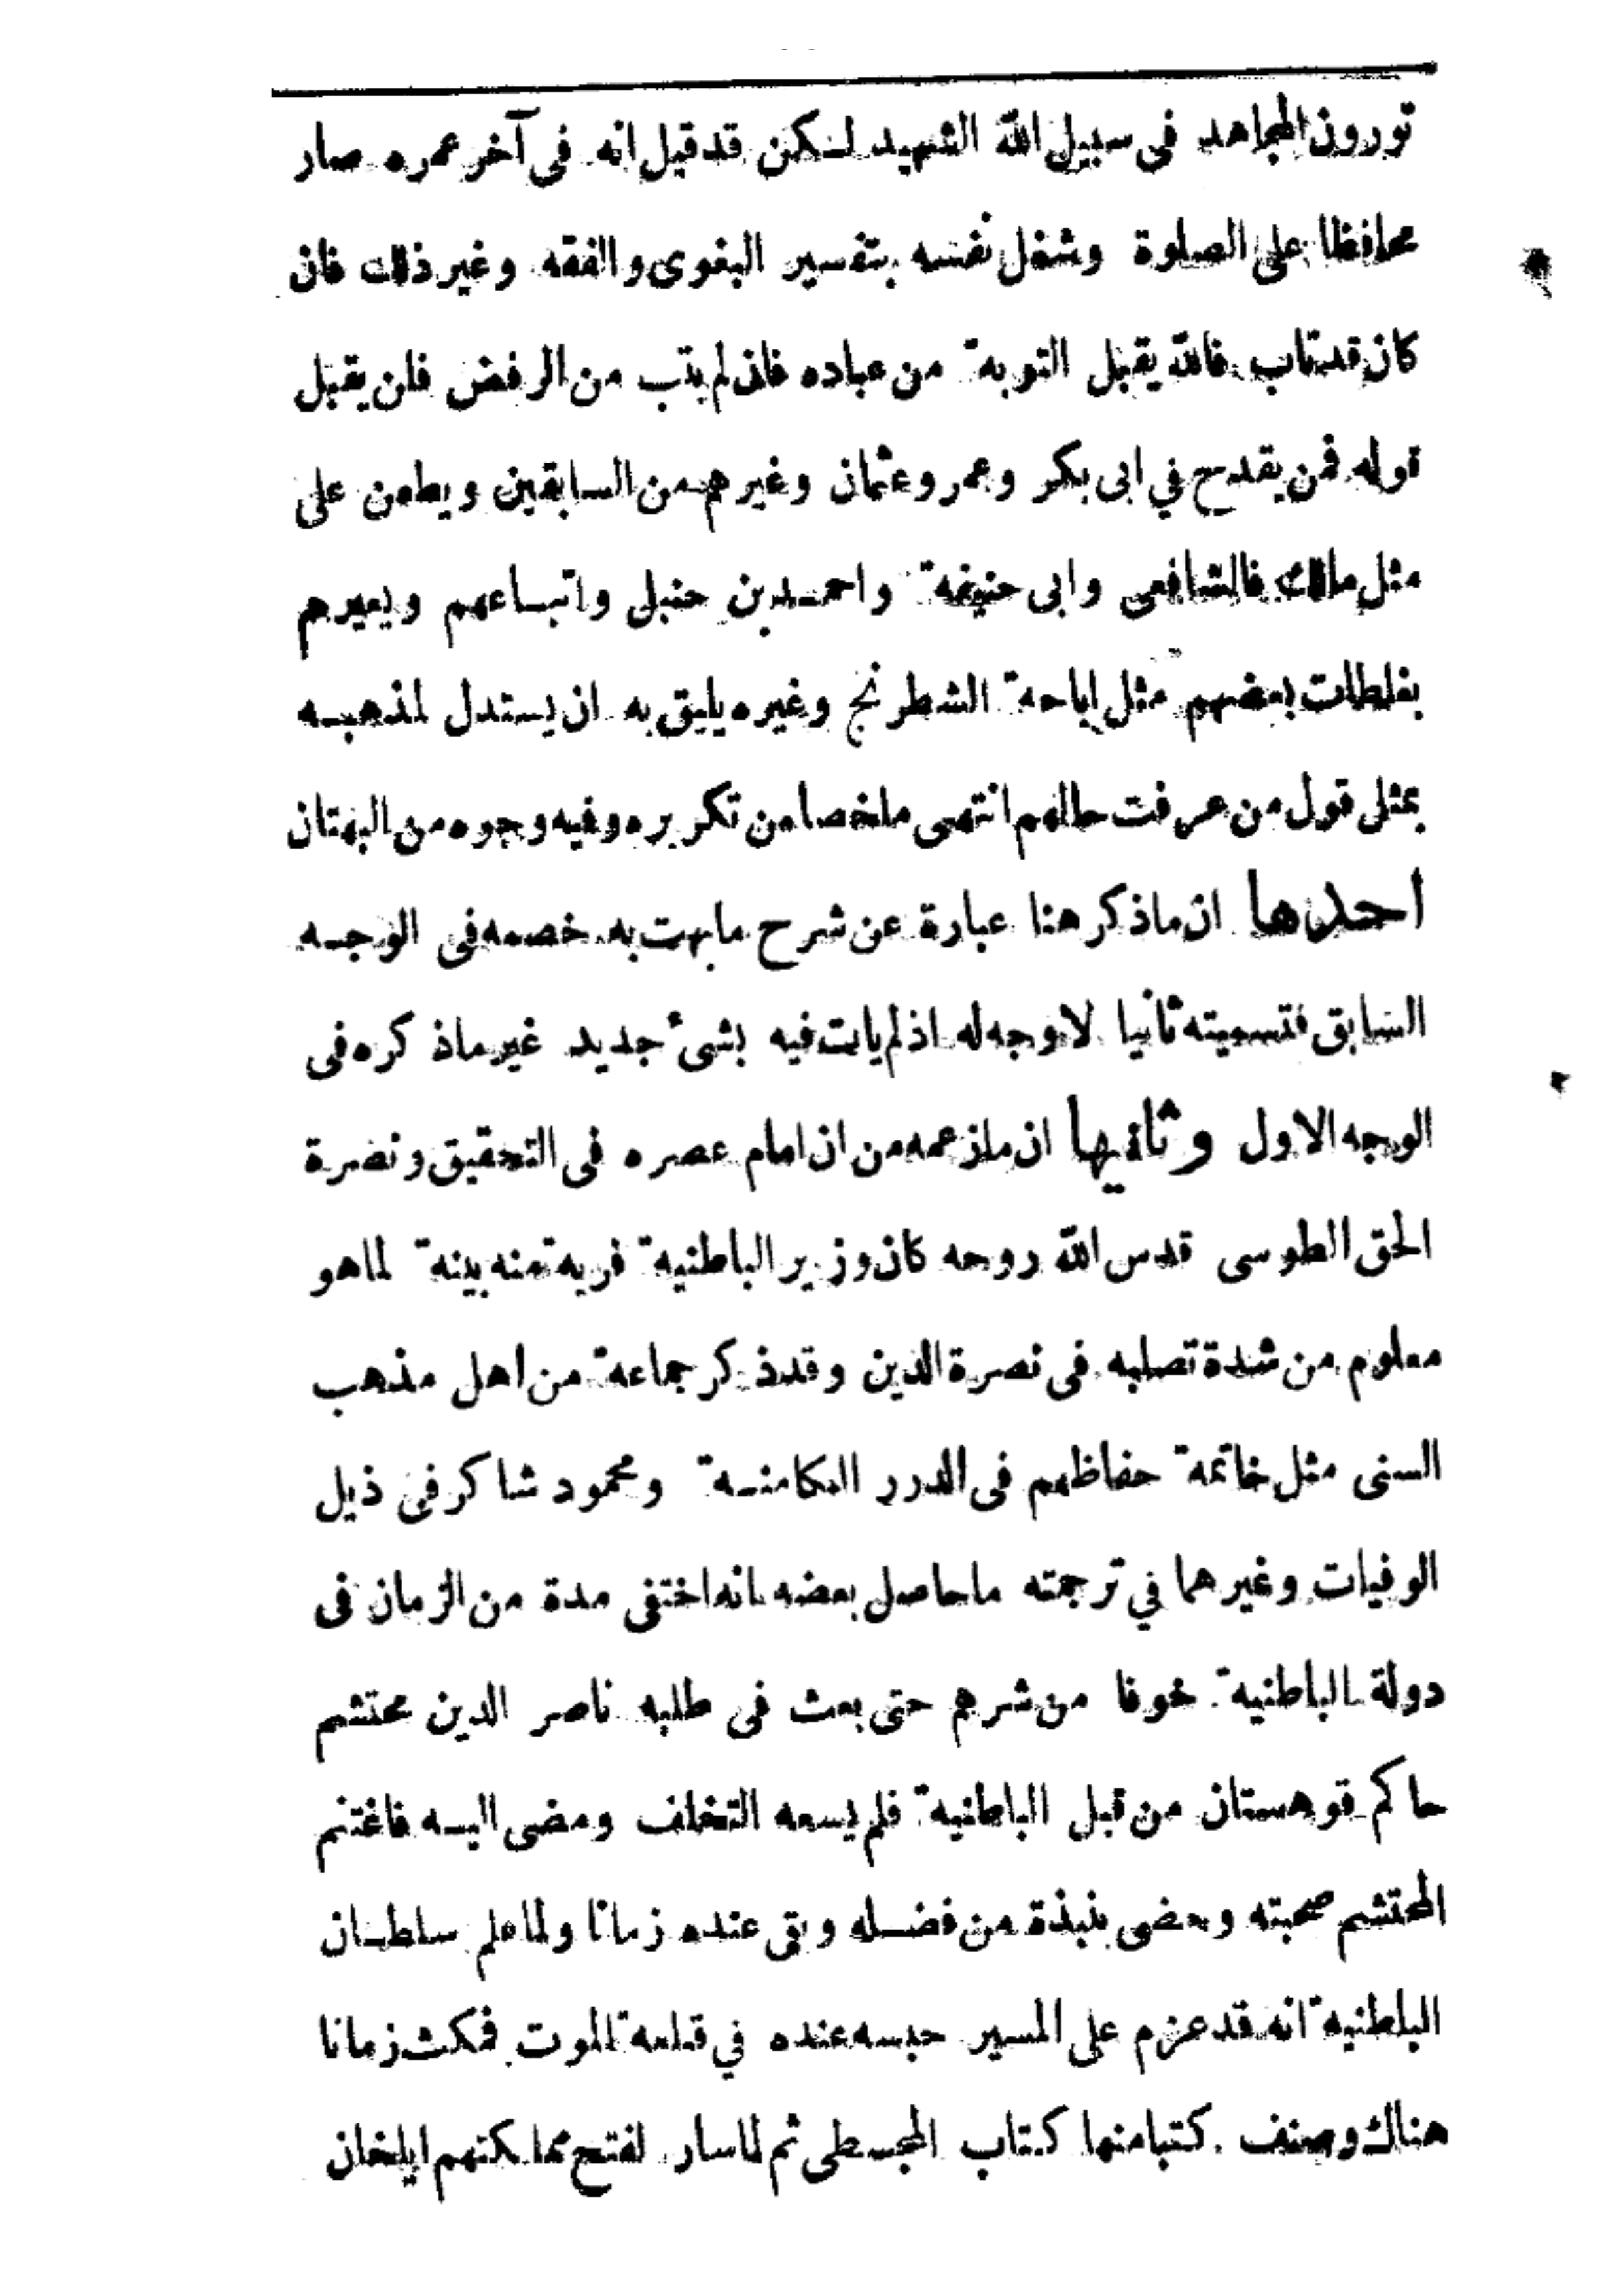 تورون المجاهد فى سبيل الله الشهيد لكن قد قيل انه فى آخر عمره صار
محافظا على الصلوة وشغل نفسه بتفسير البغوى والفقه وغير ذلك فان
كان قد تاب فالله يقبل التوبة من عباده فان لم يتب من الرفض فلن يقبل
قوله فمن يقدح في ابى بكر وعمر وعثمان وغيرهم من السابقين ويطعن على
مثل مالك فالشافعى وابى حنيفة واحمد بن حنبل واتباعهم ويعيرهم
بغلطات بعضهم مثل اباحة الشطرنج وغيره يليق به ان يستدل لمذهبه
بمثلى قول من عرفت حالهم انتهى ملخصا من تكريره وفيه وجوه من البهتان
احدها ان ماذكر هنا عبارة عن شرح ما بهت به خصمه فى الوجه
السابق فتسميته ثانيا لا وجه له اذ لم يات فيه بشئ جديد غير ماذكره فى
الوجه الاول وثانيها ان مازعمه من ان امام عصره فى التحقيق ونضرة
الحق الطوسى قدس الله روحه كان وزير الباطنية فرية منه بينة لما هو
معلوم من شدة تصلبه فى نصرة الدين وقد ذكر جماعة من اهل مذهب
السنى مثل خاتمة حفاظهم فى الدرر الكامنة ومحمود شاكر فى ذيل
الوفيات وغيرهما في ترجمته ما حاصل بعضه انه اختفى مدة من الزمان فى
دولة الباطنية خوفا من شرهم حتى بعث فى طلبه ناصر الدين محتشم
حاكم قوهستان من قبل الباطنية فلم يسعه التخلف ومضى اليه فاغتنم
المحتشم صحبته وحضى بنبذة من فضله وبقى عنده زمانا ولما علم سلطان
الباطنية انه قد عزم على المسير حبسه عنده في قلعة الموت فمكث زمانا
هناك وصنف كتبا منها كتاب المجسطى ثم لما سار لفتح مملكتهم ايلخان